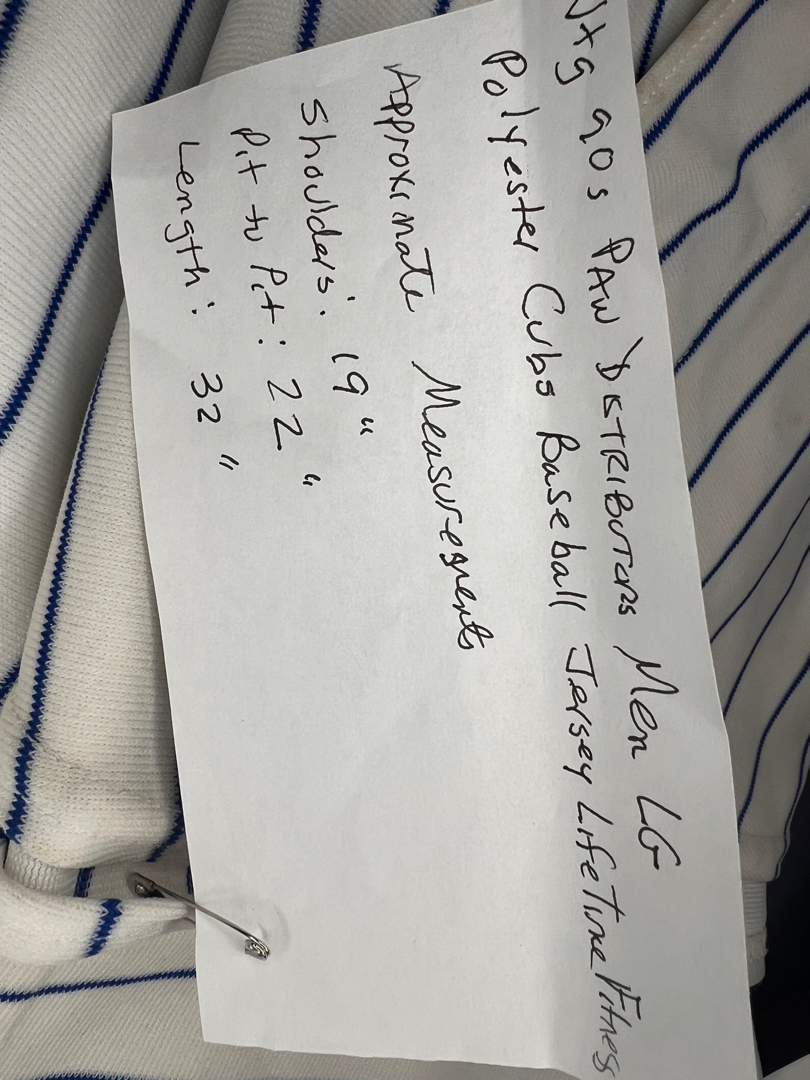 Vtg 90s PAW DISTRIBUTORS Men LG
Polyester Cubs Baseball Jersey LifeTime Fitness
Approximate Measurements
Shoulders: 19"
Pit to Pit: 22"
Length: 32"